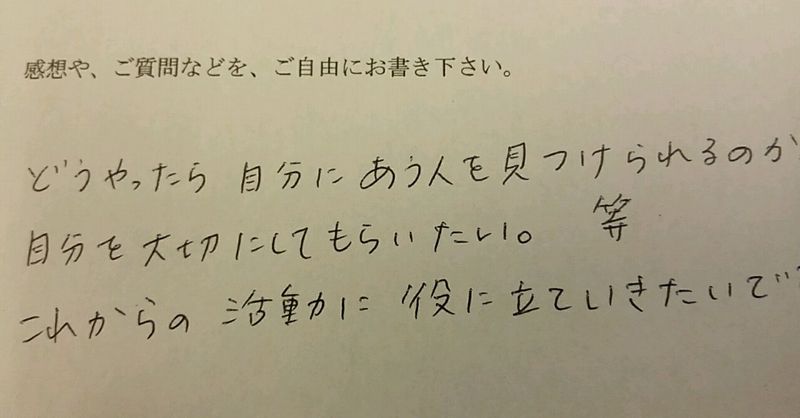 感想や、ご質問などを、ご自由にお書き下さい。
どうやったら 自分に あう人を見つけられるのか
自分を大切にしてもらいたい。 等
これからの 活動に 役に立ていきたいで